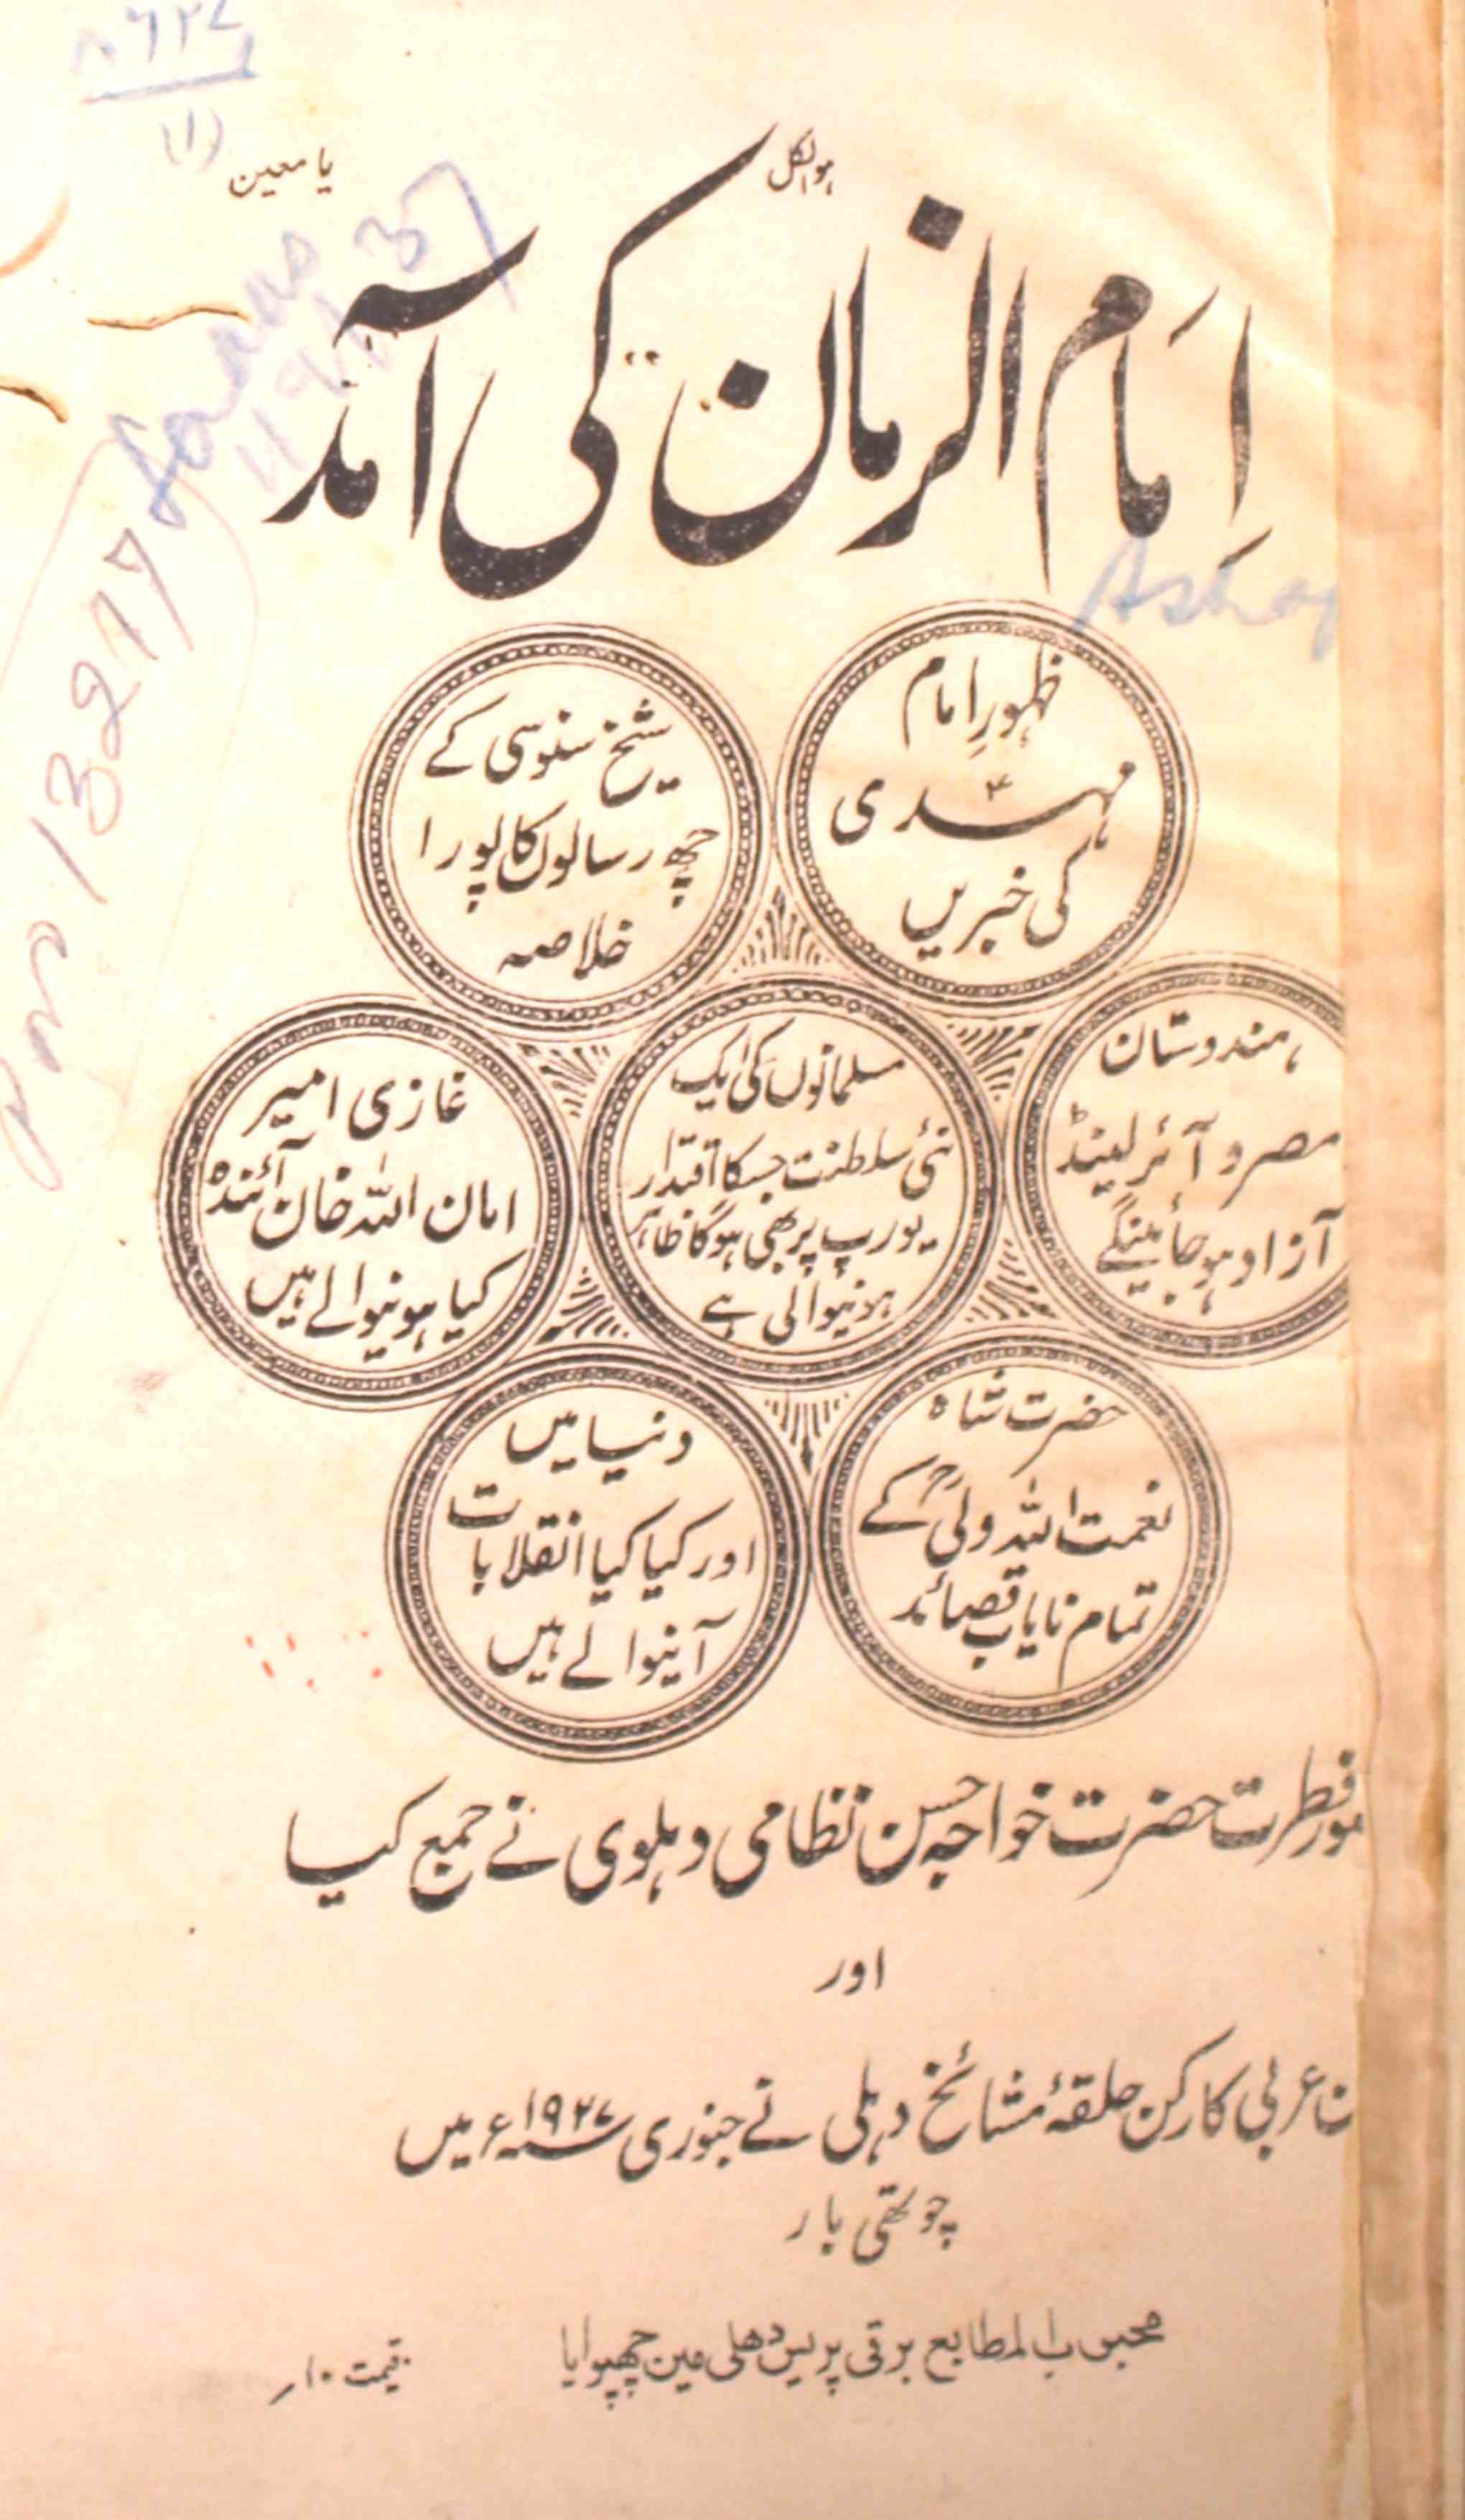 ۸۶۲۷
(۱)
ہوالکل
یا معین
اِمَام الزمان کی آمد
ظہورِ امام
مہدی ؑ
کی خبریں
شیخ سنوسی کے
چھ رسالوں کا پورا
خلاصہ
ہندوستان
مصر و آئرلینڈ
آزاد ہو جائینگے
مسلمانوں کی ایک
نئی سلطنت جسکا اقتدار
یورپ پر بھی ہوگا ظاہر
ہونیوالی ہے
غازی امیر
امان اللہ خان آئندہ
کیا ہونیوالے ہیں
حضرت شاہ
نعمت اللہ ولی ؒ کے
تمام نایاب قصائد
دنیا میں
اور کیا کیا انقلابات
آنیوالے ہیں
فطرت حضرت خواجہ حسن نظامی دہلوی نے جمع کیا
اور
عربی کارکن حلقۂ مشائخ دہلی نے جنوری ۱۹۲۷ء میں
چوتھی بار
محبوب المطابع برقی پریس دھلی مین چھپوایا
قیمت ۱۰؍